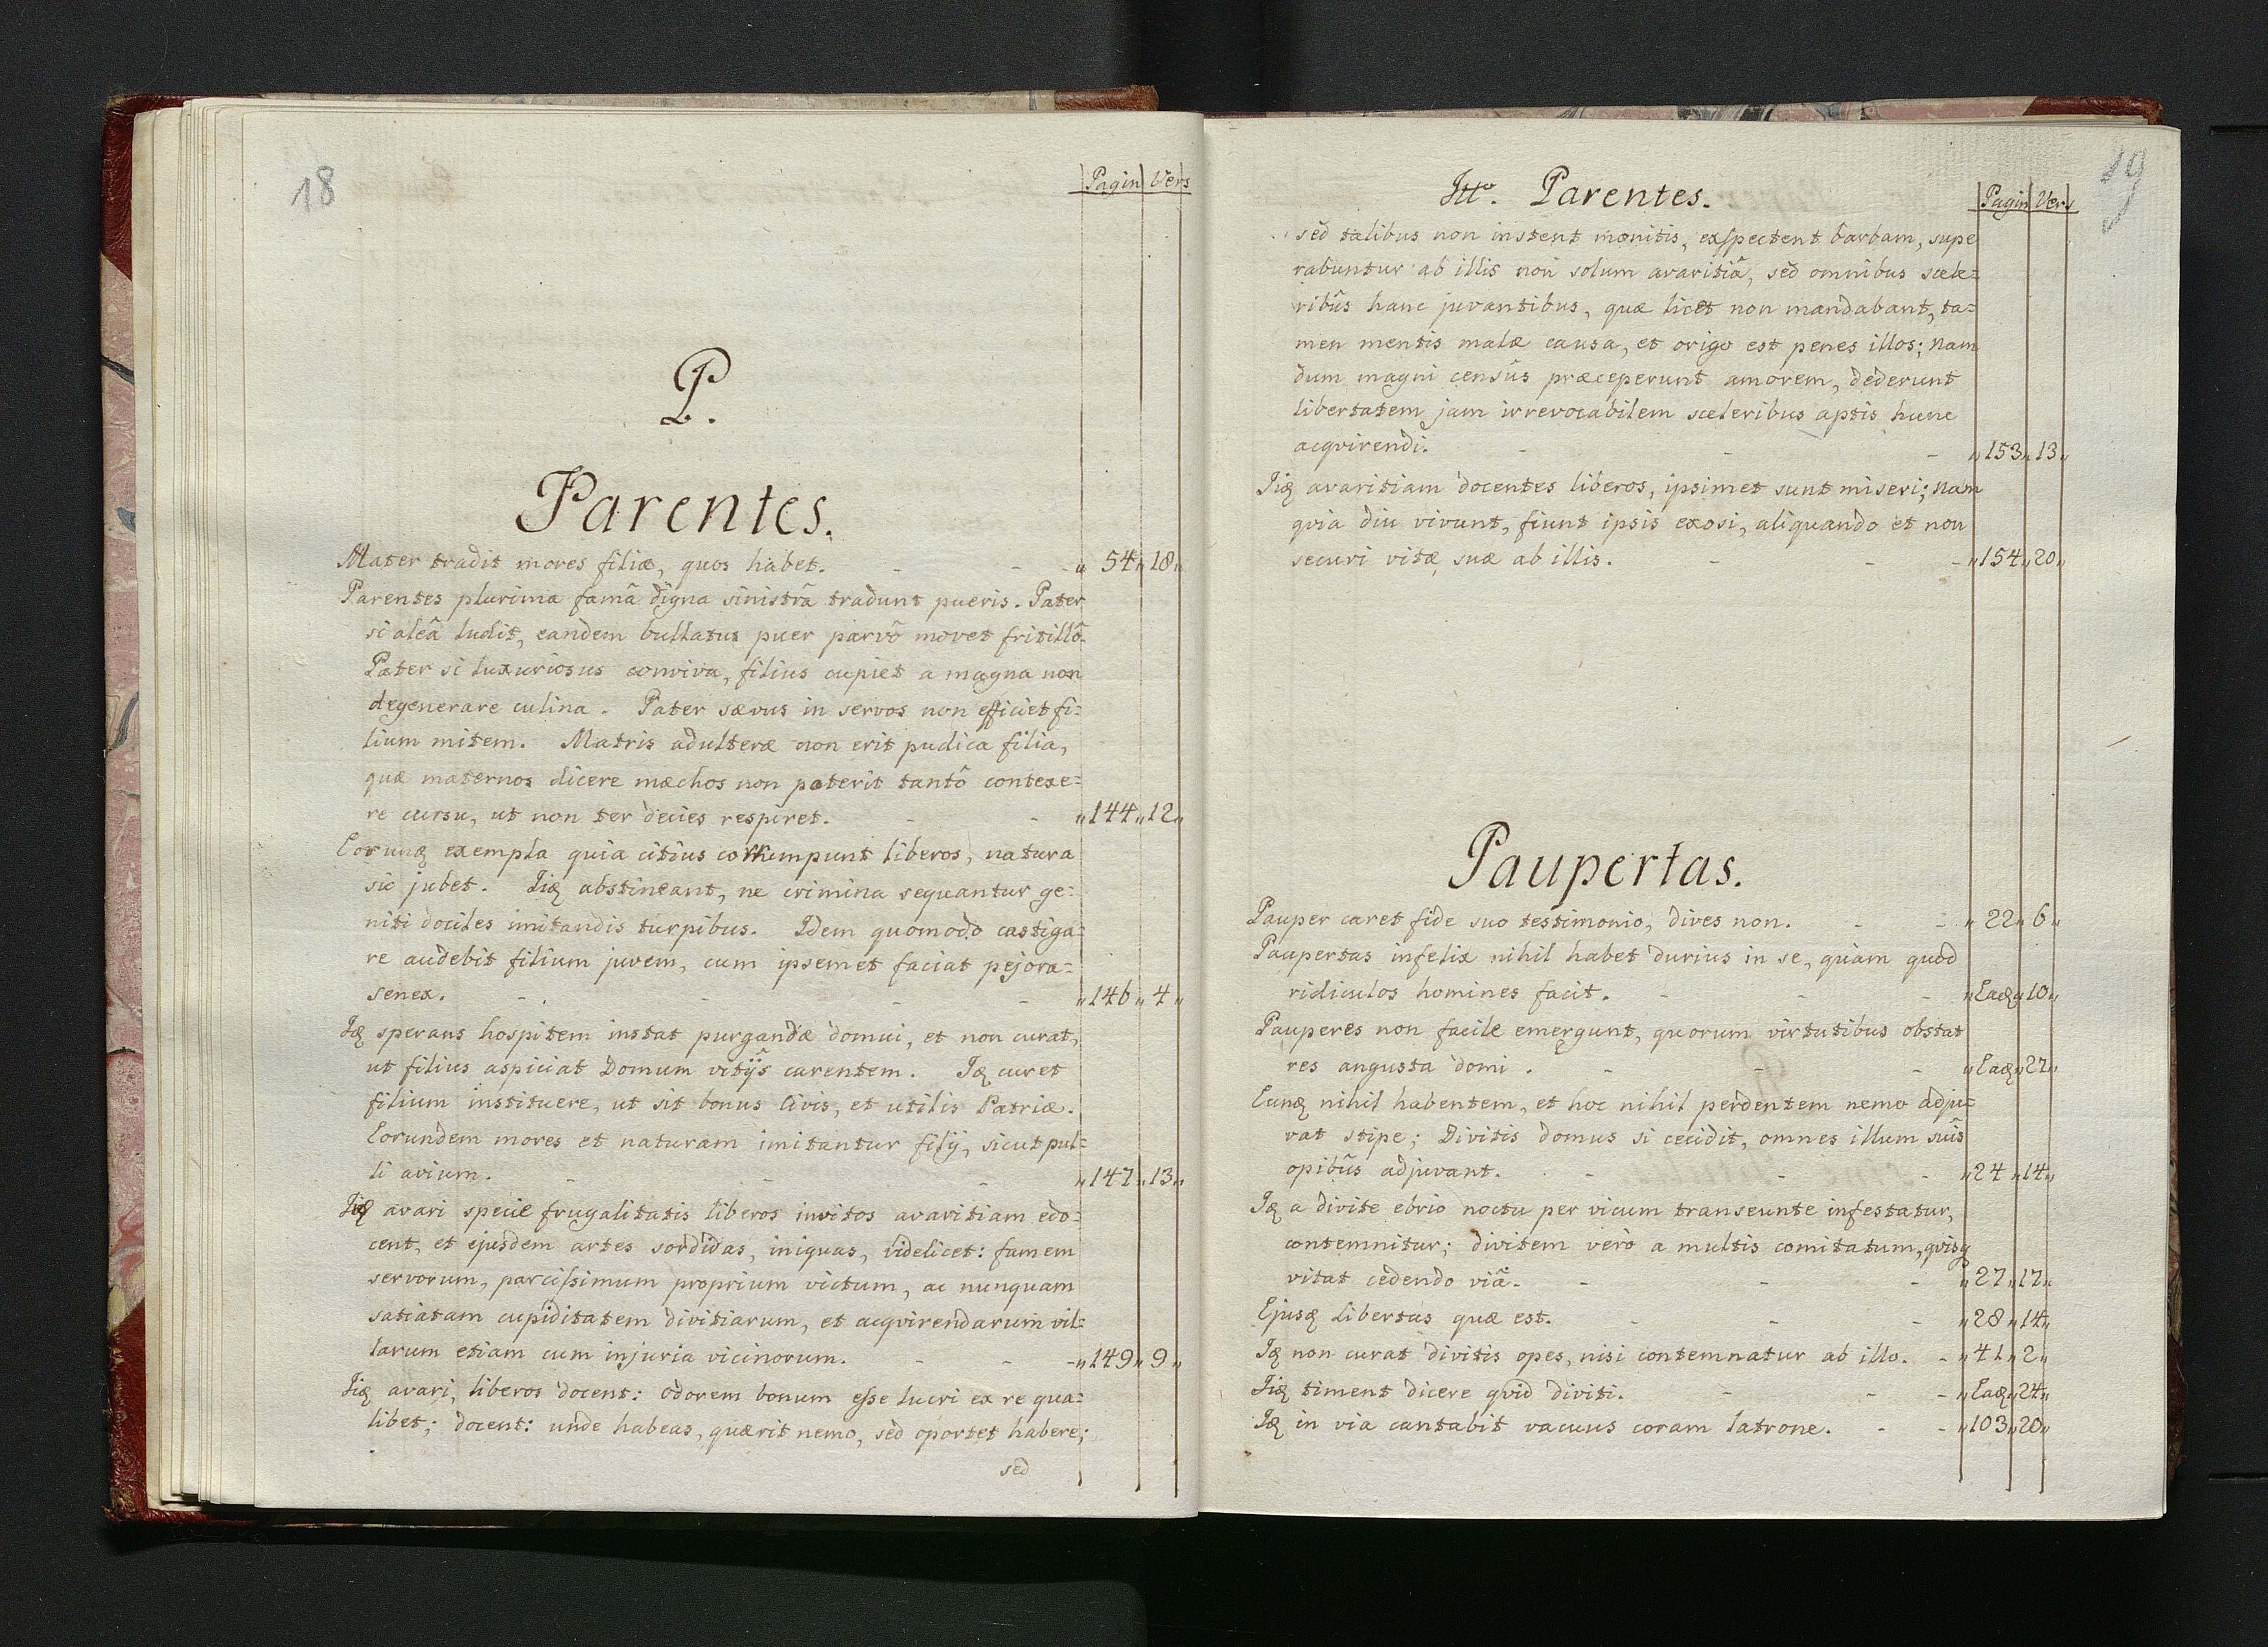 18
Pagin Vers
P.
Parentes.
Mater tradit mores filiæ, quos habet. - - - „ 54 „ 18 „
Parentes plurima famâ digna sinistrâ tradunt pueris. Pater
si aleâ ludit, eandem bullatus puer parvô movet fritillô.
Pater si luxuriosus conviva, filius cupiet a magna non
degenerare culina. Pater sævus in servos non efficiet fi=
lium mitem. Matris adulteræ non erit pudica filia,
quæ maternos dicere mæchos non poterit tantô contexe=
re cursu, ut non ter decies respiret. - - „ 144 „ 12 „
Eorunꝫ exempla quia citius corrumpunt liberos, natura
sic jubet. Iiꝫ abstineant, ne crimina sequantur ge=
niti dociles imitandis turpibus. Idem quomodo castiga=
re audebit filium juvem, cum ipsemet faciat pejora=
senex. - - - - „ 146 „ 4 „
Iꝫ sperans hospitem instat purgandæ domui, et non curat,
ut filius aspiciat Domum vitijs carentem. Iꝫ curet
filium instituere, ut sit bonus Civis, et utilis Patriæ.
Eorundem mores et naturam imitantur filij, sicut pul=
li avium. - - - „ 147 „ 13 „
Iiꝫ avari specie frugalitatis liberos invitos avaritiam edo=
cent, et ejusdem artes sordidas, iniquas, videlicet: famem
servorum, parcissimum proprium victum, ac nunquam
satiatam cupiditatem divitiarum, et acqvirendarum vil=
larum etiam cum injuria vicinorum. - - - „ 149 „ 9 „
Iiꝫ avari, liberos docent: odorem bonum esse lucri ex re qua=
libet; docent: unde habeas, quærit nemo, sed oportet habere;
sed
19
Itto. Parentes.
Pagin Vers
sed talibus non instent monitis, exspectent barbam, supe
rabuntur ab illis non solum avaritiâ, sed omnibus scele=
ribus hanc juvantibus, quæ licet non mandabant, ta=
men mentis malæ causa, et origo est penes illos; nam
dum magni censûs præceperunt amorem, dederunt
libertatem jam irrevocabilem sceleribus aptis hunc
acqvirendi. - - - „ 153 „ 13 „
Iiꝫ avaritiam docentes liberos, ipsimet sunt miseri; nam
qvia diu vivunt, fiunt ipsis exosi, aliquando et non
securi vitæ suæ ab illis. - - - „ 154 „ 20 „
Paupertas.
Pauper caret fide suo testimonio, dives non. - - „ 22 „ 6 „
Paupertas infelix nihil habet durius in se, quàm quod
ridiculos homines facit. - - - „ Eaꝫ „ 10 „
Pauperes non facile emergunt, quorum virtutibus obstat
res angusta domi. - - - „ Eaꝫ „ 27 „
Eunꝫ nihil habentem, et hoc nihil perdentem nemo adju=
vat stipe; Divitis domus si cecidit, omnes illum suis
opibûs adjuvant. - - - „ 24 „ 14 „
Iꝫ a divite ebrio noctu per vicum transeunte infestatur,
contemnitur; divitem verò a multis comitatum, qvisq
vitat cedendo viâ. - - - „ 27 „ 17 „
Ejusꝫ Libertas quæ est. - - - „ 28 „ 14 „
Iꝫ non curat divitis opes, nisi contemnatur ab illo. - „ 41 „ 2 „
Iiꝫ timent dicere qvid diviti. - - - „ Eaꝫ „ 24 „
Iꝫ in via cantabit vacuus coram latrone. - - „ 103 „ 20 „